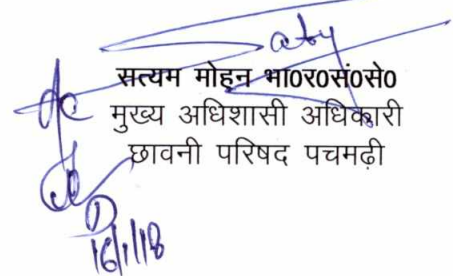 सत्यम मोहन भा0र0सं0से0
मुख्य अधिशासी अधिकारी
छावनी परिषद पचमढ़ी
16/1/18